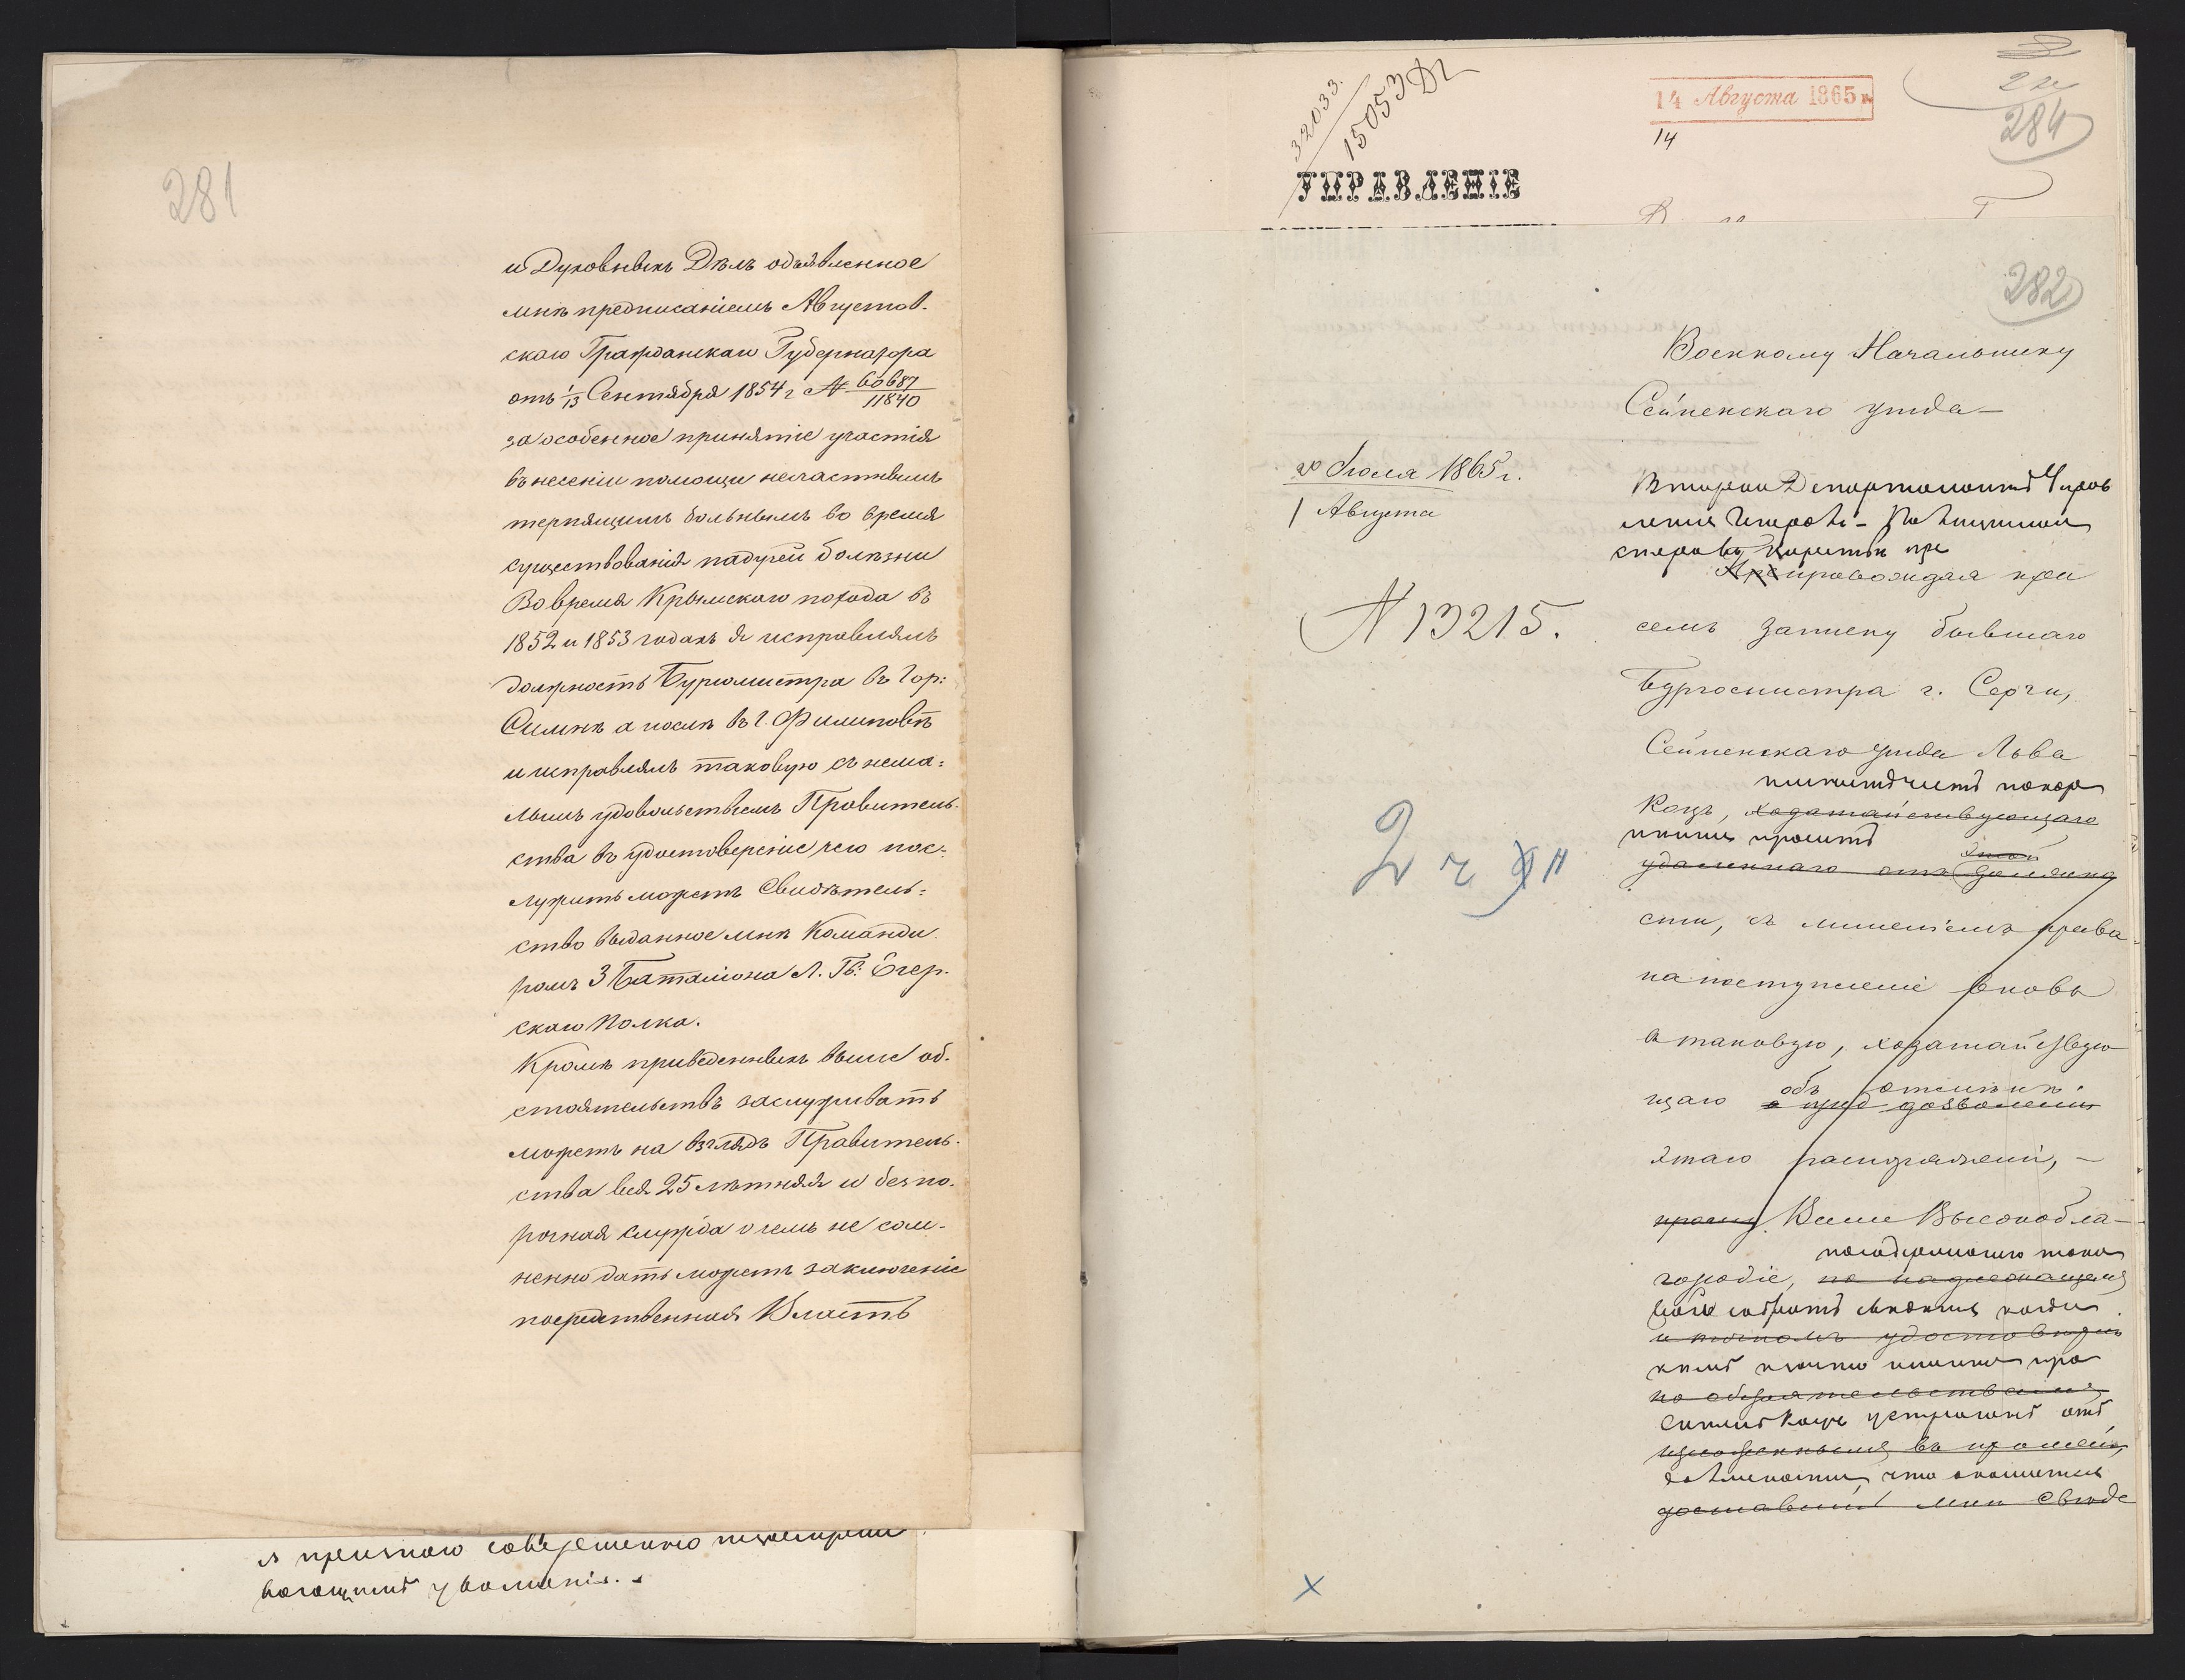 281
и Духовныхъ Дѣлъ объявленное
мнѣ предписаніемъ Августов-
скаго Гражданскаго Губернатора
отъ 1/13 Сентября 1854 г № 60687/11840
за особенное принятіе участія
въ несеніи помощи несчастнымъ
терпящимъ больнымъ во время
существованія падучей болѣзни
Во время Крымскаго похода въ
1852 и 1853 годахъ я исправлялъ
должность Бургомистра въ Гор:
Симнѣ а послѣ въ г. Филиповѣ
и исправлялъ таковую съ нема-
лымъ удовольствіемъ Правитель-
ства въ удостовереніе чего пос-
лужить можетъ Свидѣтель-
ство выданное мнѣ Команди-
ромъ 3 Баталіона Л. Гв: Егер-
скаго Полка.
Кромѣ приведенныхъ выше об-
стоятельствъ заслуживать
можетъ на взглядъ Правитель-
ства вся 25 лѣтняя и безпо-
рочная служба о чемъ не сом-
ненно дать можетъ заключеніе
посредственная Власть
я признаю совершенно
уваженія.
32033.
15053
14 Августа 1865 г.
14
284
УПРАВЛЕНІЕ
282
Военному Начальнику
Сейненскаго уѣзда
20 Іюля 1865 г.
1 Августа
№ 13215.
2 ч
Препровождая при
семъ записку бывшаго
Бургомистра г. Серѣи,
Сейненскаго уѣзда Льва
покор
Коцъ, ходатайствующаго
проситъ
удаленнаго отъ должно
сти, съ лишеніемъ права
на поступленіе вновь
въ таковую, ходатайствую
щаго объ отмѣнѣ
о дозволеніи
этаго распоряженія, —
прошу Ваше Высокобла-
городіе, по надлежащемъ
собрать свѣдѣнія когда
и точномъ удостовѣре
по обстоятельствамъ
Коцъ устраненъ отъ
изложеннымъ въ прошеніи,
должности, что
доставить мнѣ свѣде